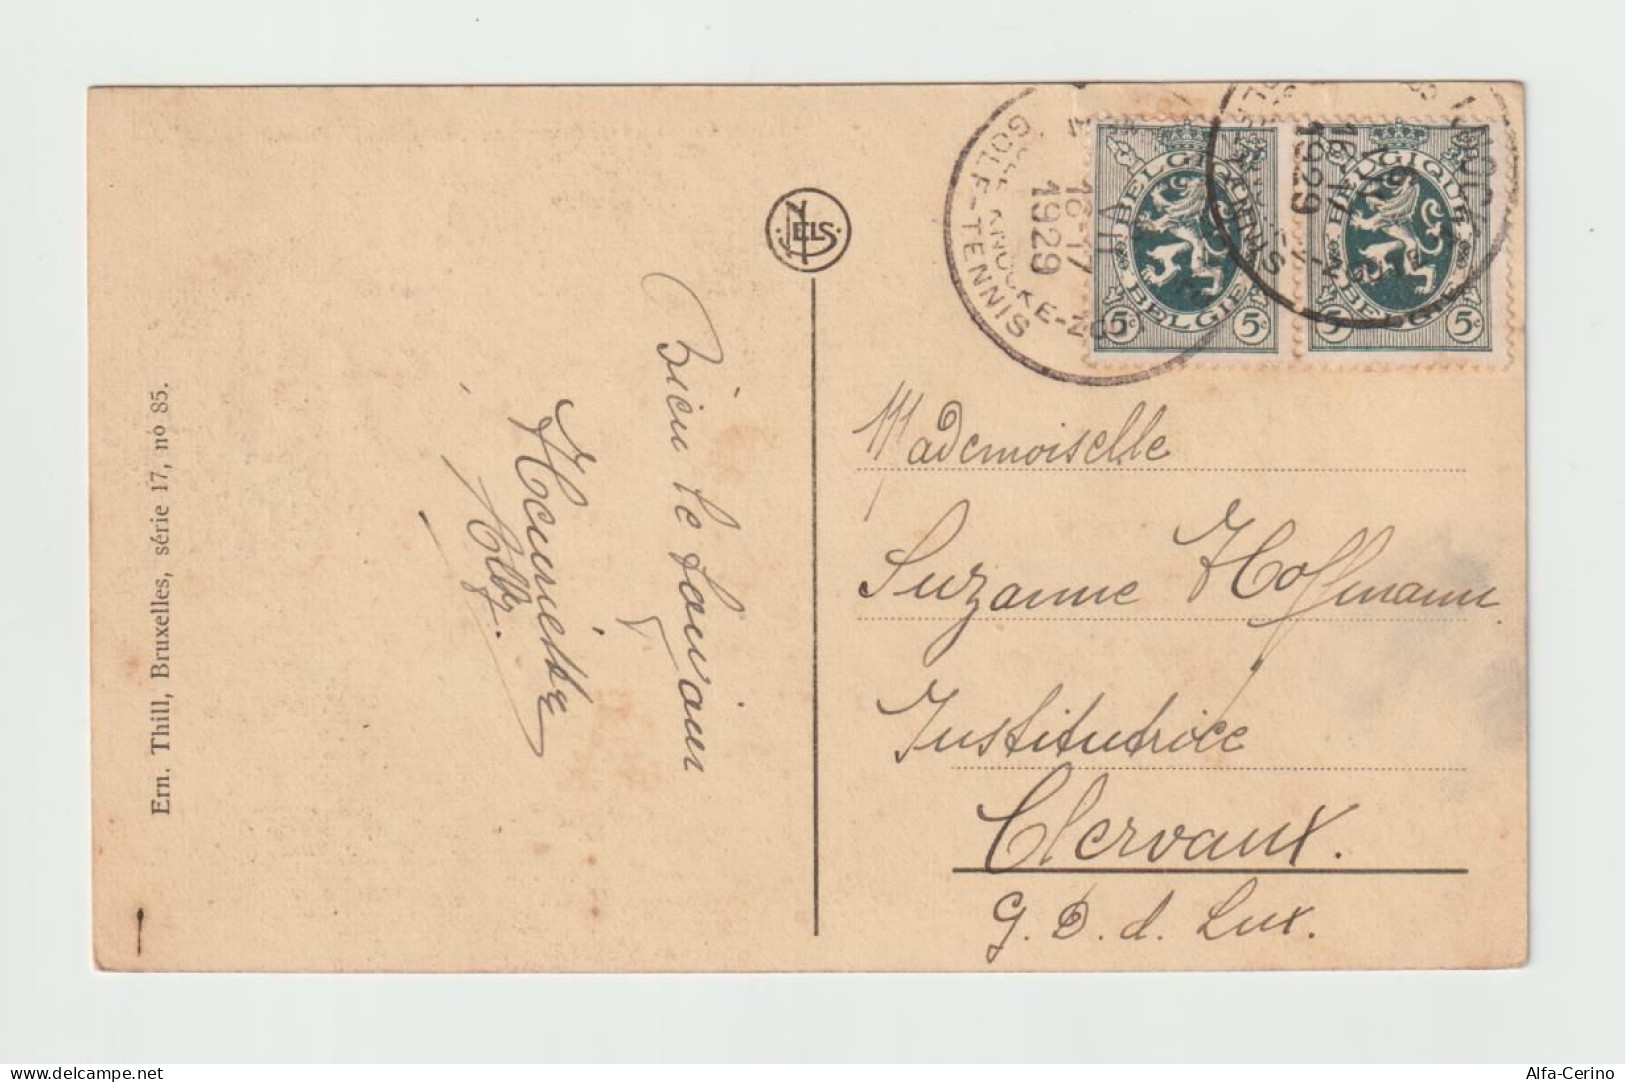 NELS
GOLF-TENNIS
KNOCKE-ZOUTE
16-17
1929
16-17
1929
BELGIQUE
BELGIE
5c 5c
BELGIQUE
BELGIE
5c 5c
Bien le bonjour
Henriette
Mademoiselle
Suzanne Hoffmann
Institutrice
Clervaux.
G. D. d. Lux.
Ern. Thill, Bruxelles, série 17, no 85.
delcampe.net
Alfa-Cerino